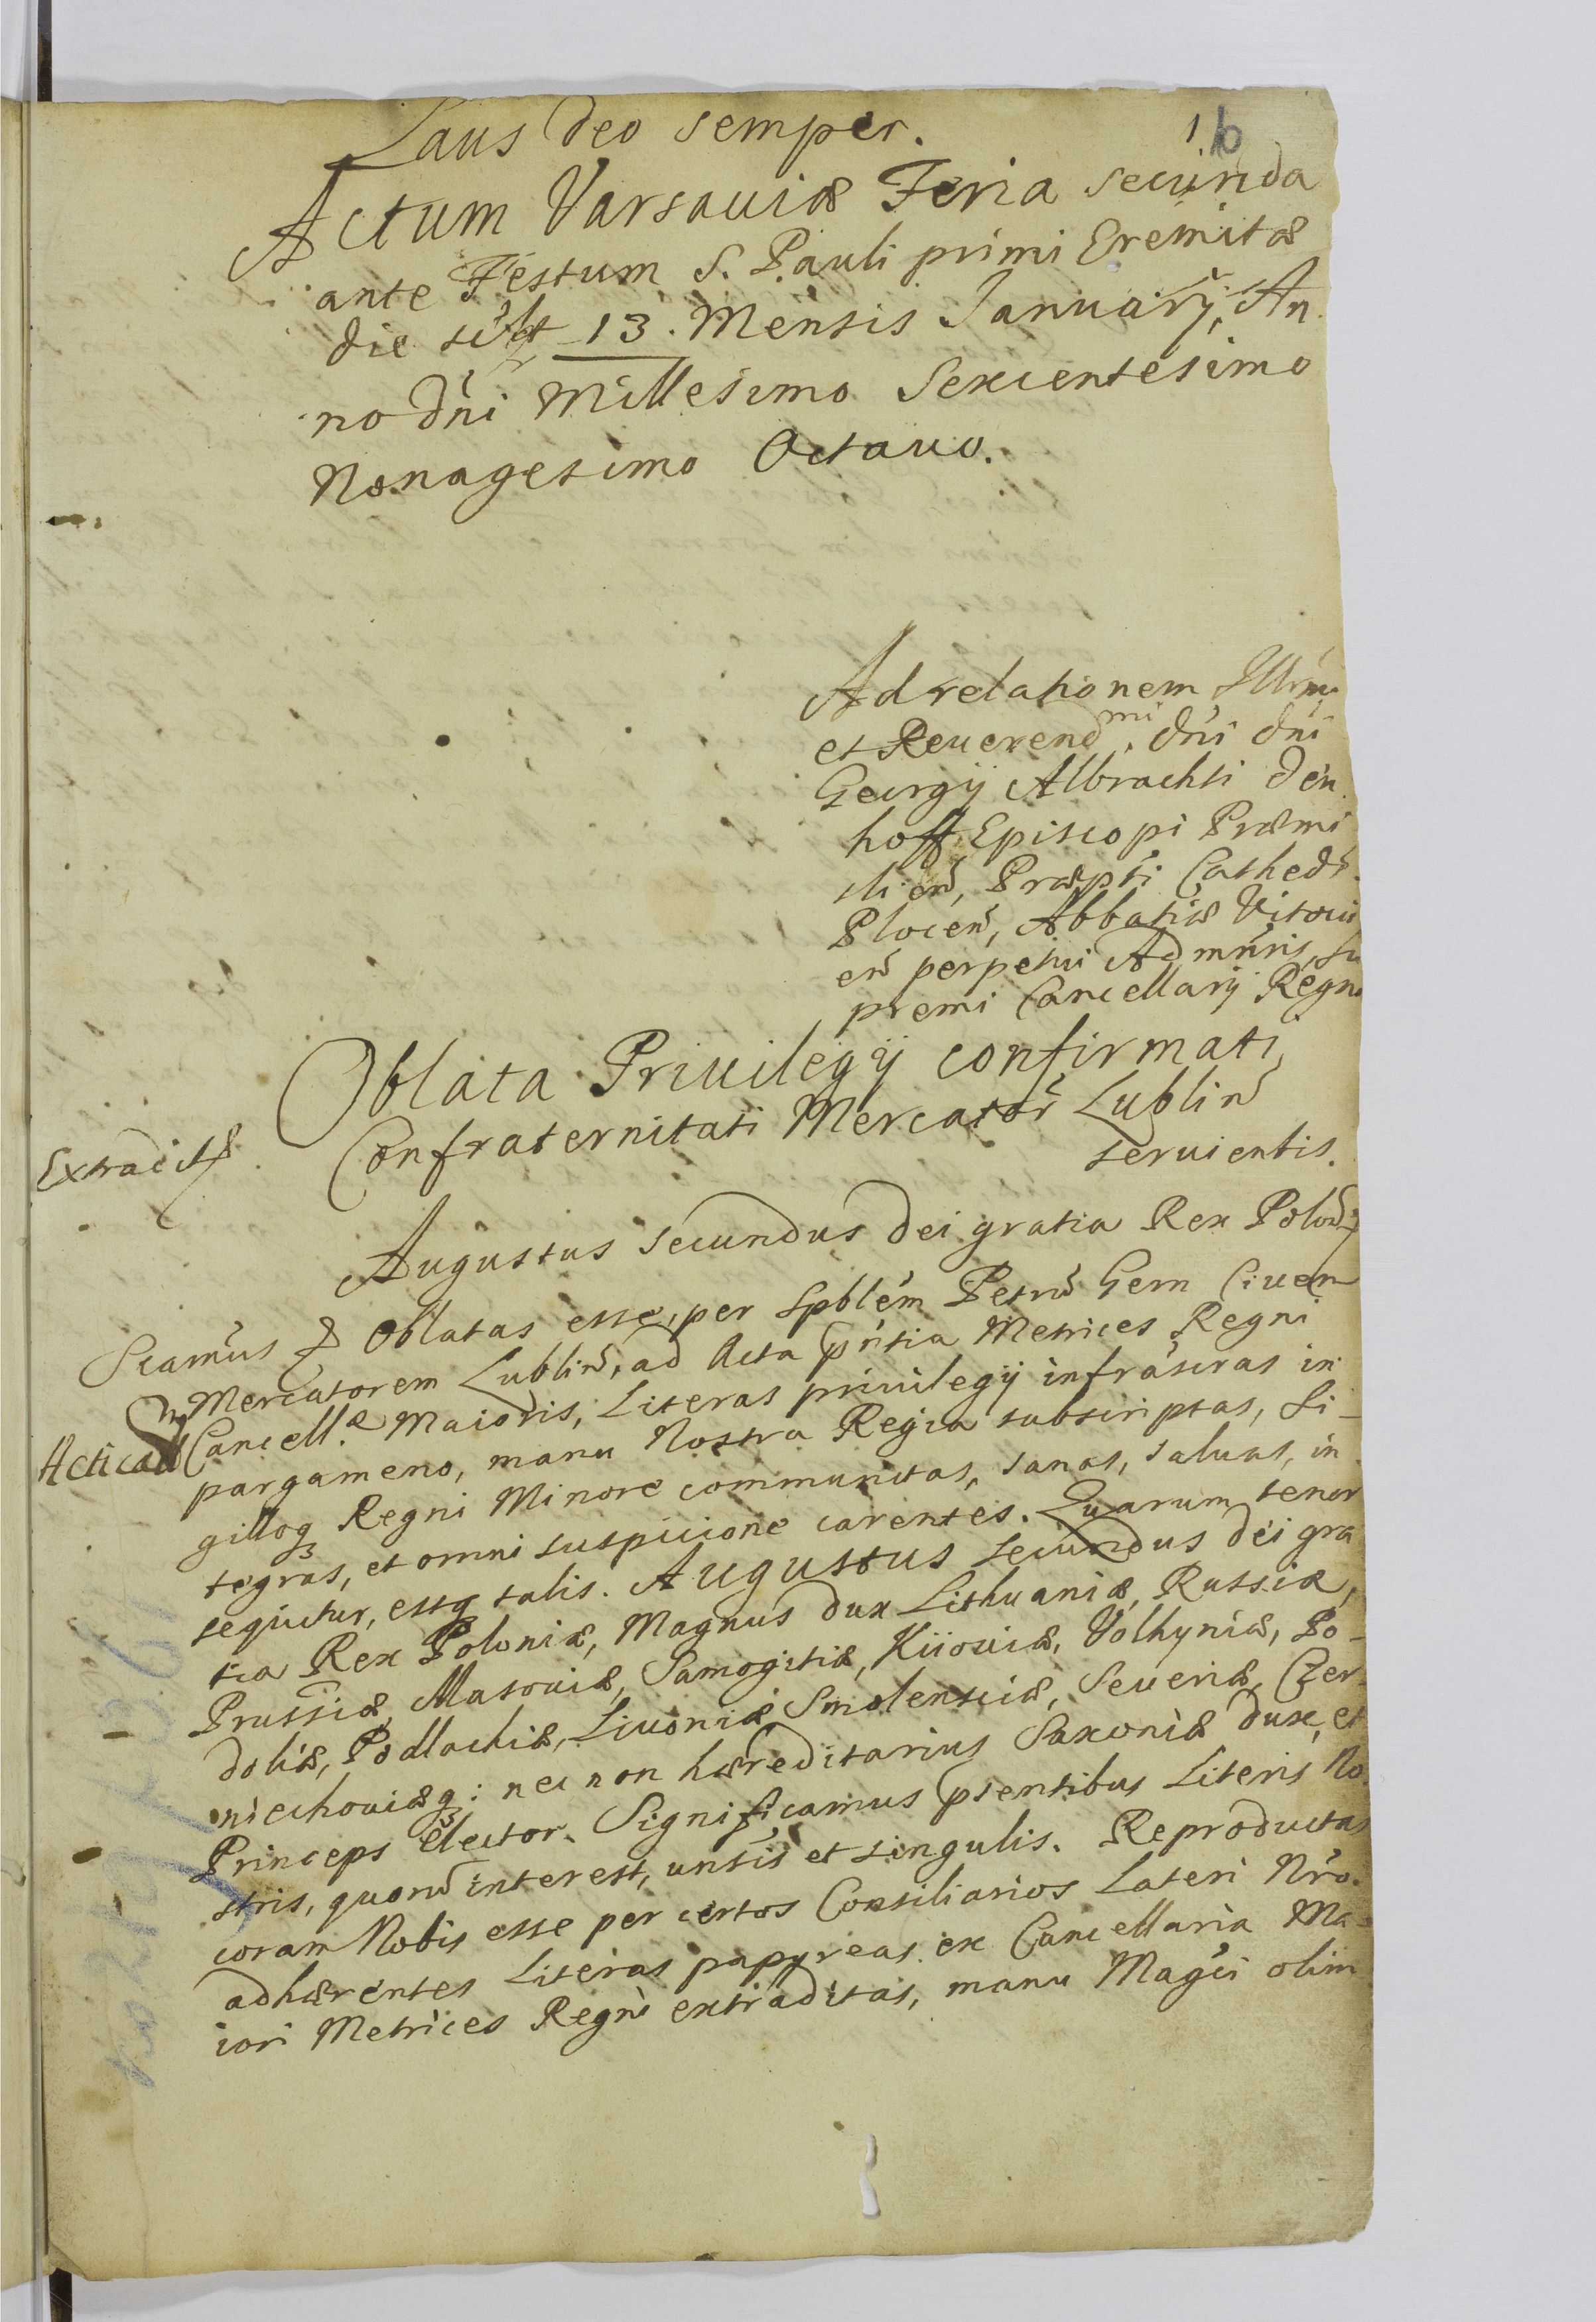 Laus Deo semper.
1.b
Actum Varsauiæ Feria secunda
ante Festum S. Pauli primi Eremitæ
die scilet 13. Mensis Januarij, An
no Dni Millesimo Sexcentesimo
Nonagesimo Octauo.
Ad relationem Illrmi
et Reuerendmi Dni Dni
Georgij Albrachti Den
hoff Episcopi Præmi
slien, Præpti Cathedr.
Plocen, Abbatiæ Vitouii
en perpetui Admnris, Su
premi Cancellarij Regni
Oblata Priuilegij confirmati
Confraternitati Mercator Lublin
seruientis.
Extradit
Augustus Secundus Dei gratia Rex Polon
Scamus Oblatas esse, per Spblem Petru Gern Ciuem
Mercatorem Lublin, ad Acta pntia Metrices Regni
Cancell.æ Maioris, Literas priuilegij infrascras in
Acticat
pargameno, manu Nostra Regia subscriptas, Si-
gilloq Regni Minore communitas, sanas, saluas, in
tegras, et omni suspicione carentes. Quarum tenor
sequitur, estq talis. Augustus Secundus Dei gra
tia Rex Poloniæ, Magnus Dux Lithuaniæ, Russiæ,
Prussiæ, Masouiæ, Samogitiæ, Kiiouiæ, Volhyniæ, Po-
doliæ, Podlachiæ, Liuoniæ Smolensciæ, Seueriæ, Czer
niechouiæq: nec non hæreditarius Saxoniæ Dux, et
Princeps Elector. Significamus psentibus Literis No
stris, quoru interest, unsis et singulis. Reproductas
coram Nobis esse per certos Consiliarios Lateri Nro.
adhærentes Literas papyreas. ex Cancellaria Ma-
iori Metrices Regni extraditas, manu Magci olim